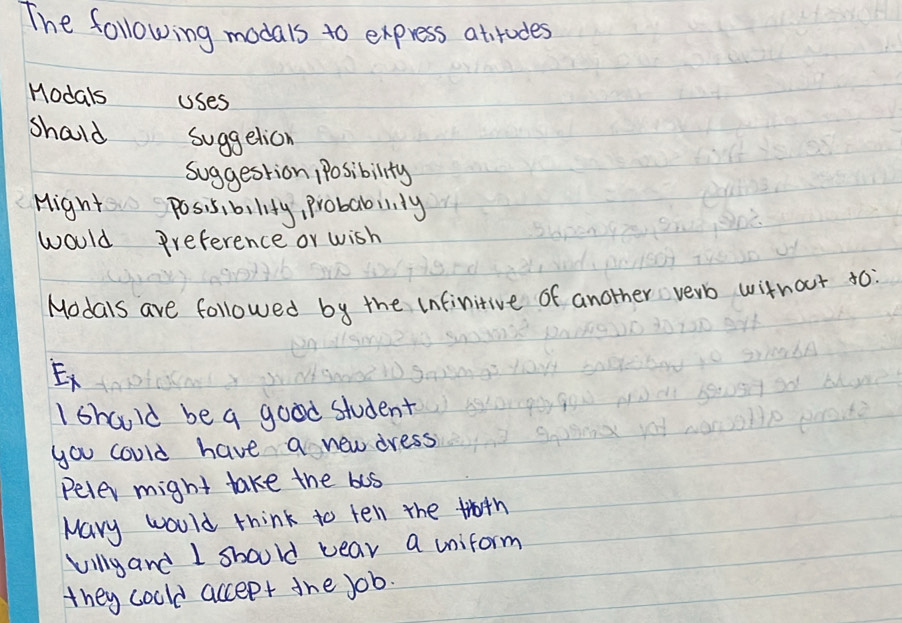 The following modals to express atitudes
Modals uses
Should Suggetion
Suggestion, Posibility
Might Posisibility, Probability
would Preference or wish
Modals are followed by the infinitive of another verb without to:
Ex
I should be a good student
you could have a new dress
Peter might take the bus
Mary would think to tell the truth
Willy and I should wear a uniform
they could accept the job.